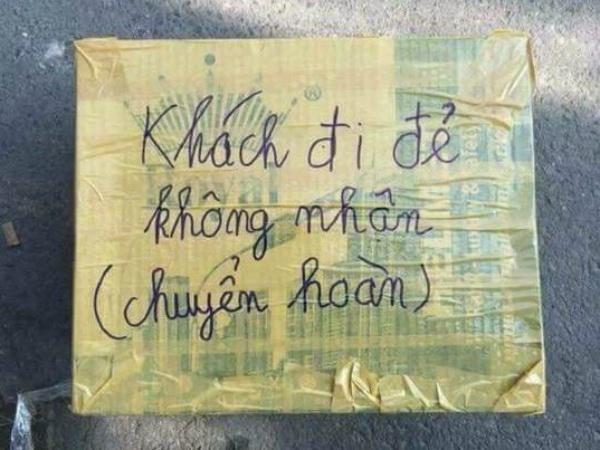 Khách đi đẻ
không nhận
(chuyển hoàn)
®